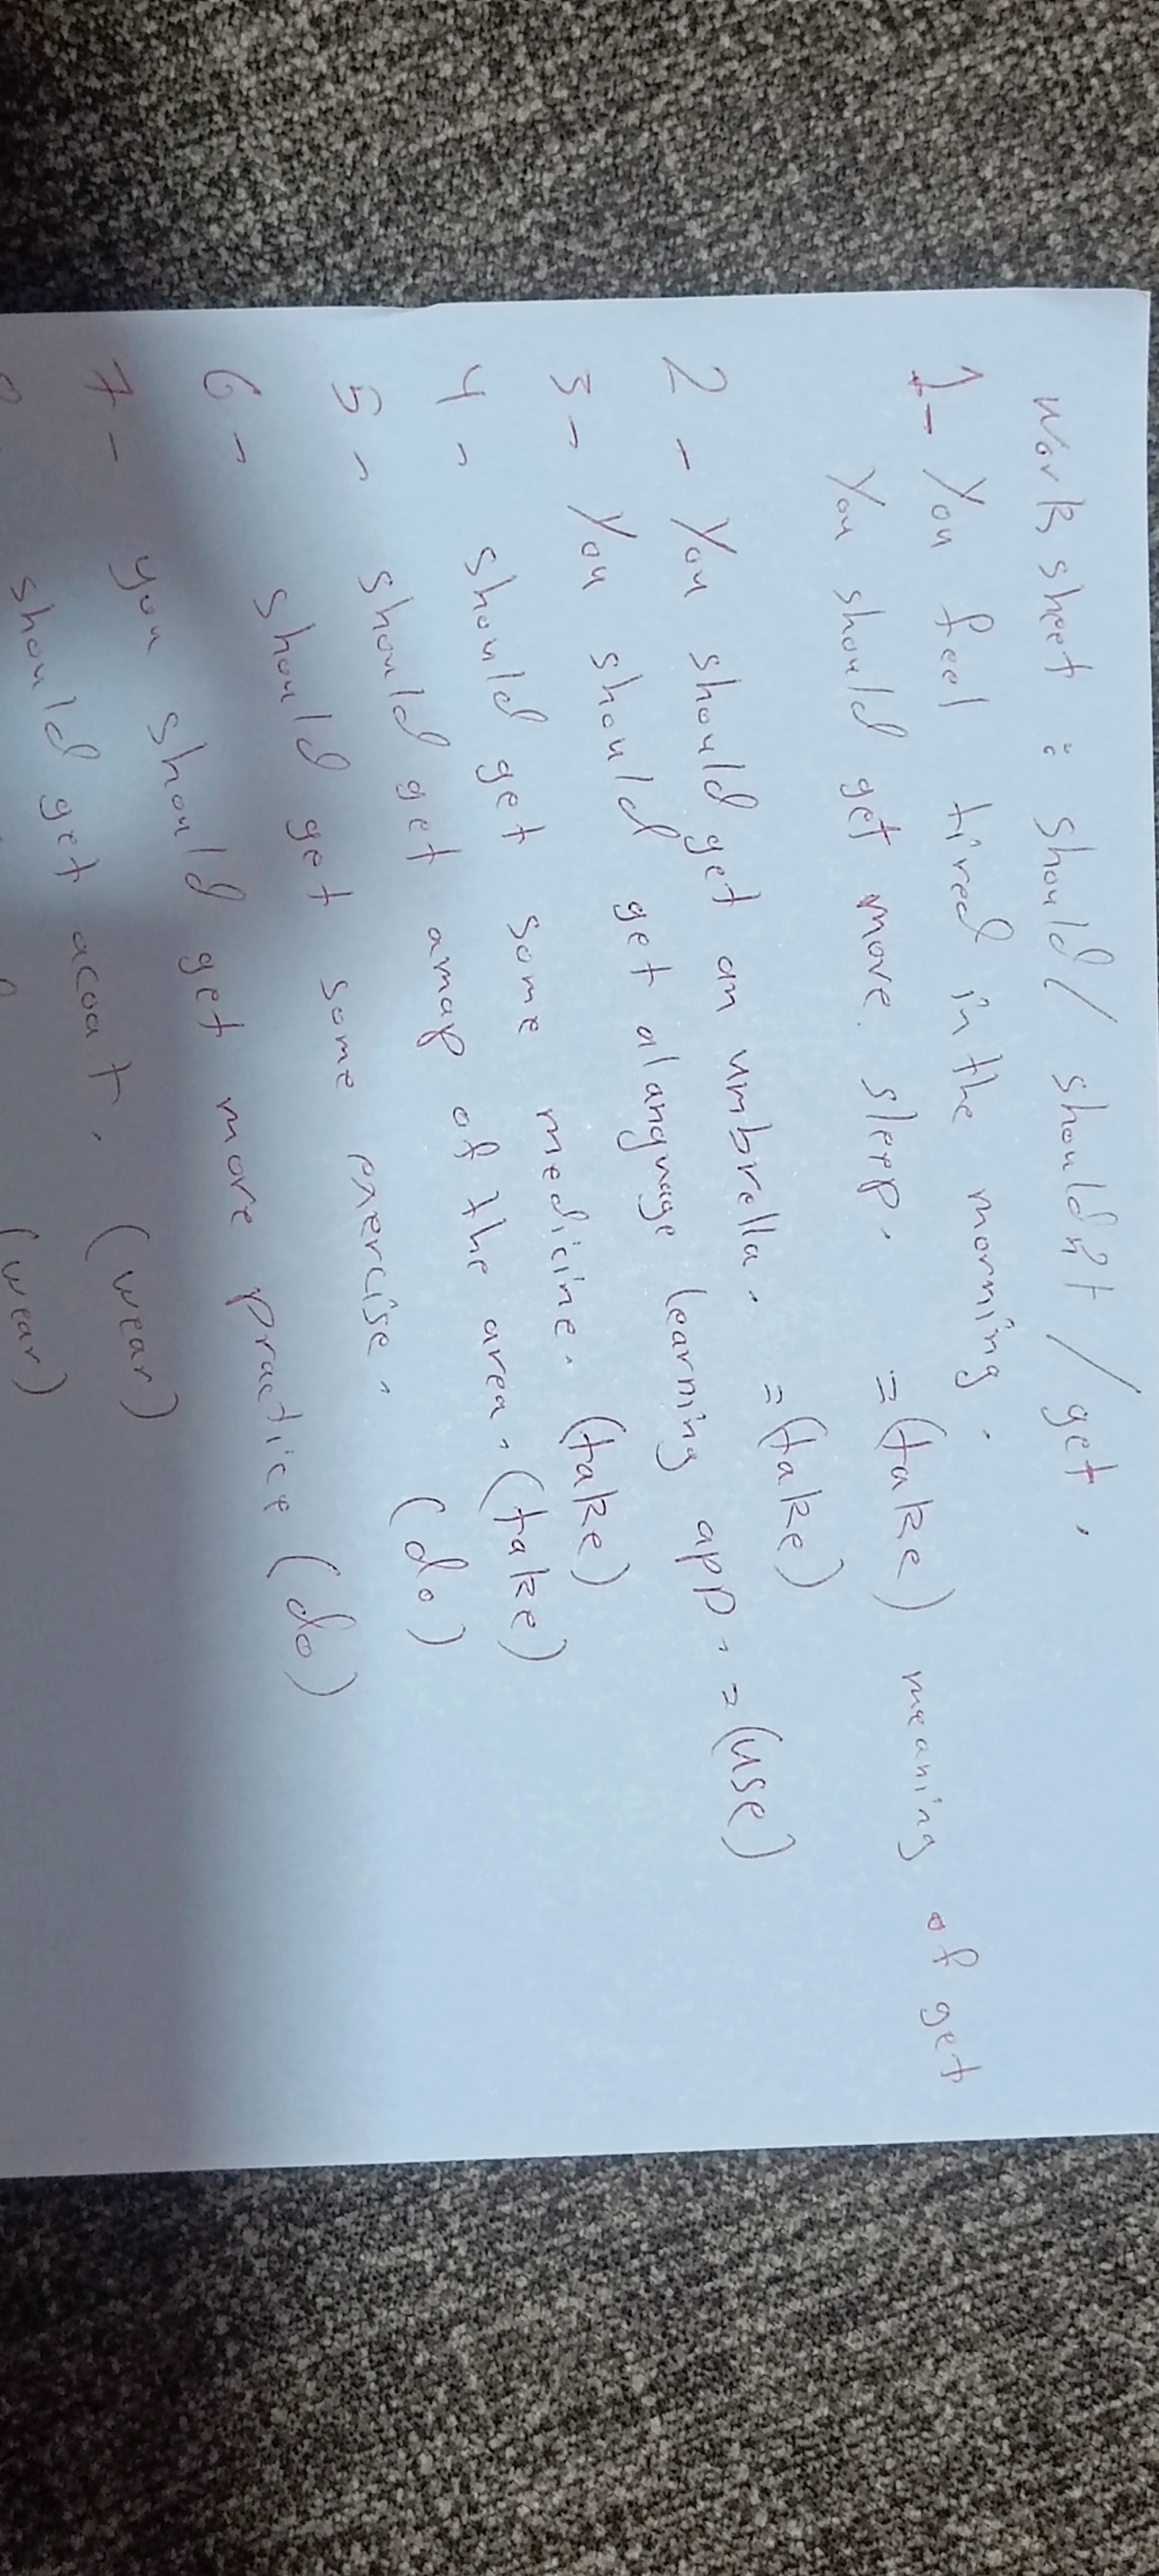 Worksheet : should / shouldn't / get .
1- You feel tired in the morning .
You should get more sleep . = (take) meaning of get
2 - You should get an umbrella . = (take)
3 - You should get alanguage learning app . = (use)
4 - should get some medicine . (take)
5 - should get amap of the area . (take)
6 - should get some exercise . (do)
7 - you should get more practice (do)
should get acoat . (wear)
(wear)